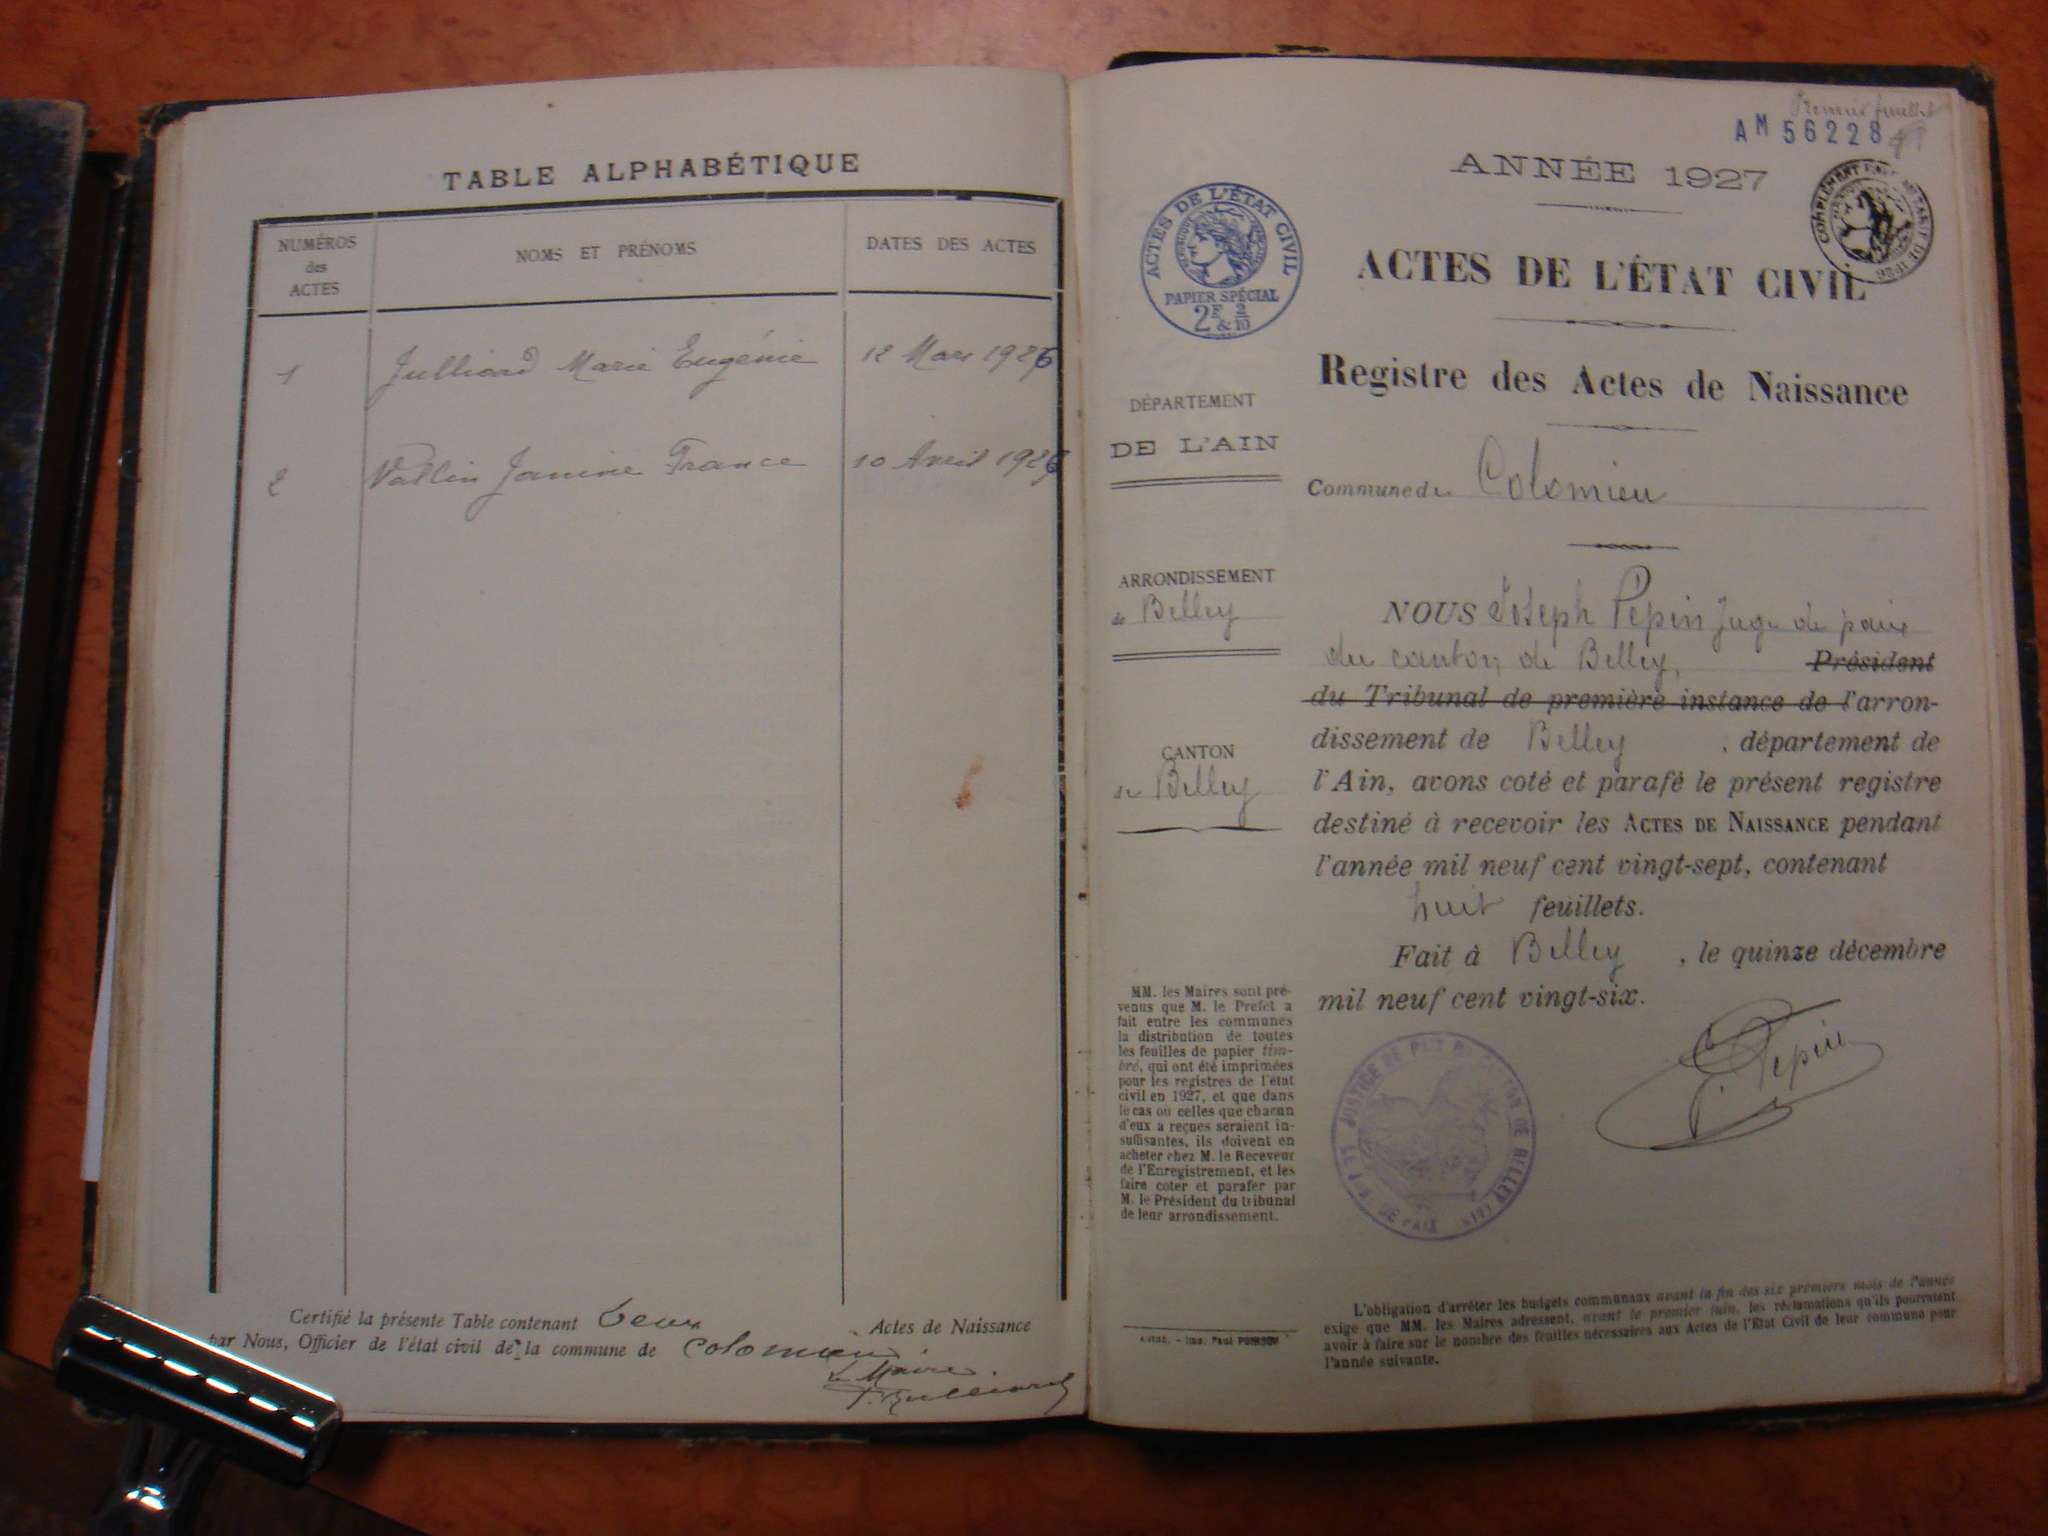 TABLE ALPHABÉTIQUE
NUMÉROS des ACTES
NOMS ET PRÉNOMS
DATES DES ACTES
1 Julliard Marie Eugénie 12 Mars 1926
2 Vallin Janine France 10 Avril 1926
Certifié la présente Table contenant deux Actes de Naissance
par Nous, Officier de l'état civil de la commune de Colomieu
Le Maire
Premier feuillet
AM 56228
ANNÉE 1927
ACTES DE L'ÉTAT CIVIL
PAPIER SPÉCIAL
2F & 2/10
COMPLÉMENT
ACTES DE L'ÉTAT CIVIL
Registre des Actes de Naissance
DÉPARTEMENT
DE L'AIN
Commune de Colomieu
ARRONDISSEMENT
de Belley
CANTON
de Belley
NOUS Joseph Pépin Juge de paix
du canton de Belley, Président
du Tribunal de première instance de l'arron-
dissement de Belley, département de
l'Ain, avons coté et parafé le présent registre
destiné à recevoir les ACTES DE NAISSANCE pendant
l'année mil neuf cent vingt-sept, contenant
huit feuillets.
Fait à Belley, le quinze décembre
mil neuf cent vingt-six.
J. Pepin
JUSTICE DE PAIX DU CANTON DE BELLEY
MM. les Maires sont pré-
venus que M. le Prefet a
fait entre les communes
la distribution de toutes
les feuilles de papier tim-
bré, qui ont été imprimées
pour les registres de l'état
civil en 1927, et que dans
le cas ou celles que chacun
d'eux a reçues seraient in-
suffisantes, ils doivent en
acheter chez M. le Receveur
de l'Enregistrement, et les
faire coter et parafer par
M. le Président du tribunal
de leur arrondissement.
L'obligation d'arrêter les budgets communaux avant la fin des six premiers mois de l'année
exige que MM. les Maires adressent, avant le premier juin, les réclamations qu'ils pourraient
avoir à faire sur le nombre des feuilles nécessaires aux Actes de l'Etat Civil de leur commune pour
l'année suivante.